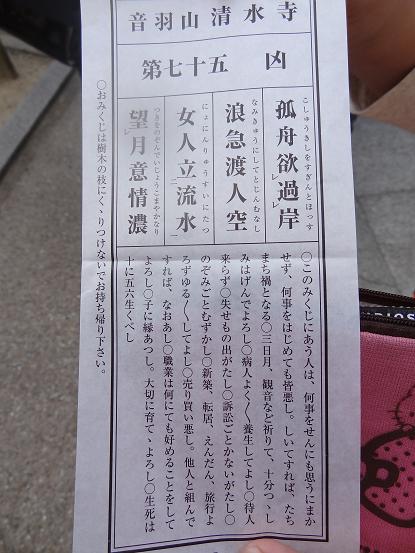 音羽山清水寺
第七十五 凶
こしゅうきしをすぎんとほっす
孤舟欲過岸
なみきゅうにしてとじんむなし
浪急渡人空
にょにんりゅうすいにたつ
女人立流水
つきをのぞんでいじょうこまやかなり
望月意情濃
〇このみくじにあう人は、何事をせんにも思うにまか
せず、何事をはじめても皆悪し。しいてすれば、たち
まち禍となる〇三日月、観音など祈りて、十分つゝし
みはげんでよろし〇病人よく〱養生してよし〇待人
来らず〇失せもの出がたし〇訴訟ごとかないがたし〇
のぞみごとむずかし〇新築、転居、えんだん、旅行よ
ろずゆる〱してよし〇売り買い悪し。他人と組んで
すれば、なおあし〇職業は何にても好めることをして
よろし〇子に縁あつし。大切に育てゝよろし〇生死は
十に五六生くべし
〇おみくじは樹木の枝にくゝりつけないでお持ち帰り下さい。